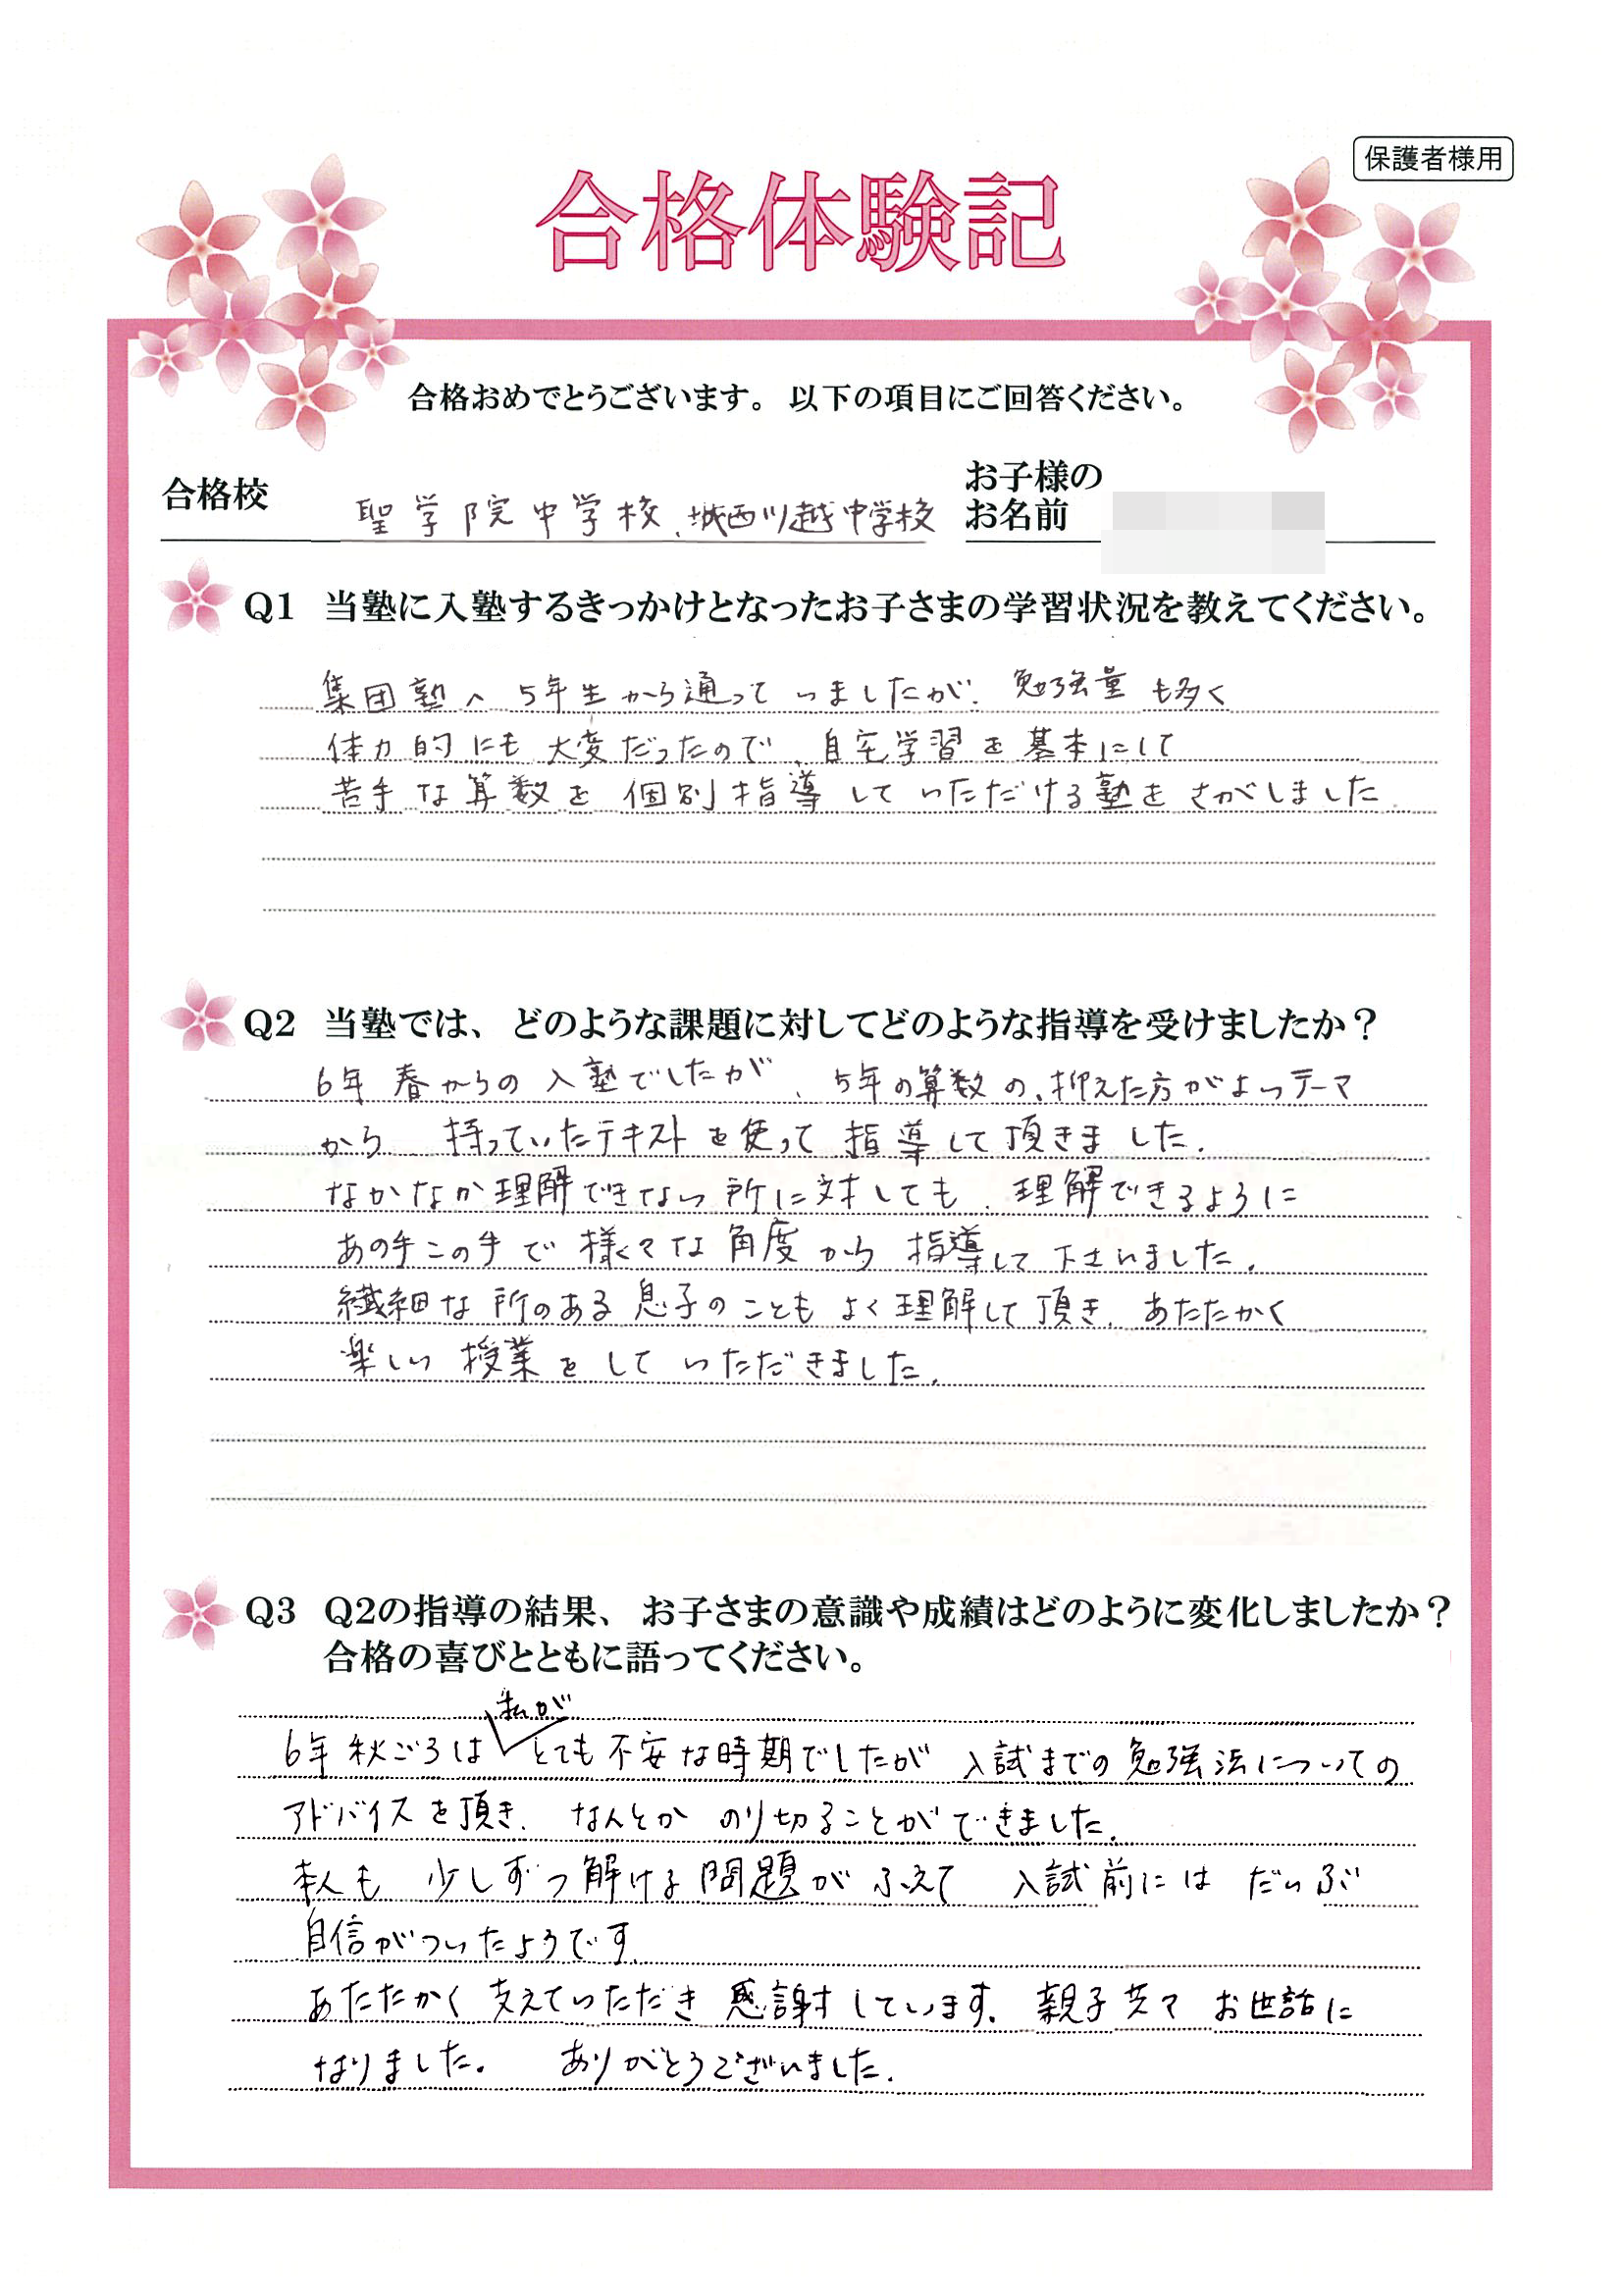 保護者様用
合格体験記
合格おめでとうございます。以下の項目にご回答ください。
合格校 聖学院中学校、城西川越中学校
お子様の
お名前
Q1 当塾に入塾するきっかけとなったお子さまの学習状況を教えてください。
集団塾へ5年生から通っていましたが、勉強量も多く
体力的にも大変だったので、自宅学習を基本にして
苦手な算数を個別指導していただける塾をさがしました。
Q2 当塾では、どのような課題に対してどのような指導を受けましたか？
6年春からの入塾でしたが、5年の算数の、抑えた方がよいテーマ
から 持っていたテキストを使って指導して頂きました。
なかなか理解できない所に対しても、理解できるように
あの手この手で様々な角度から指導して下さいました。
繊細な所のある息子のこともよく理解して頂き、あたたかく
楽しい授業をしていただきました。
Q3 Q2の指導の結果、お子さまの意識や成績はどのように変化しましたか？
合格の喜びとともに語ってください。
私が
6年秋ごろはとても不安な時期でしたが 入試までの勉強法についての
アドバイスを頂き、なんとかのり切ることができました。
本人も 少しずつ解ける問題がふえて 入試前には だいぶ
自信がついたようです。
あたたかく支えていただき感謝しています。親子共々お世話に
なりました。 ありがとうございました。